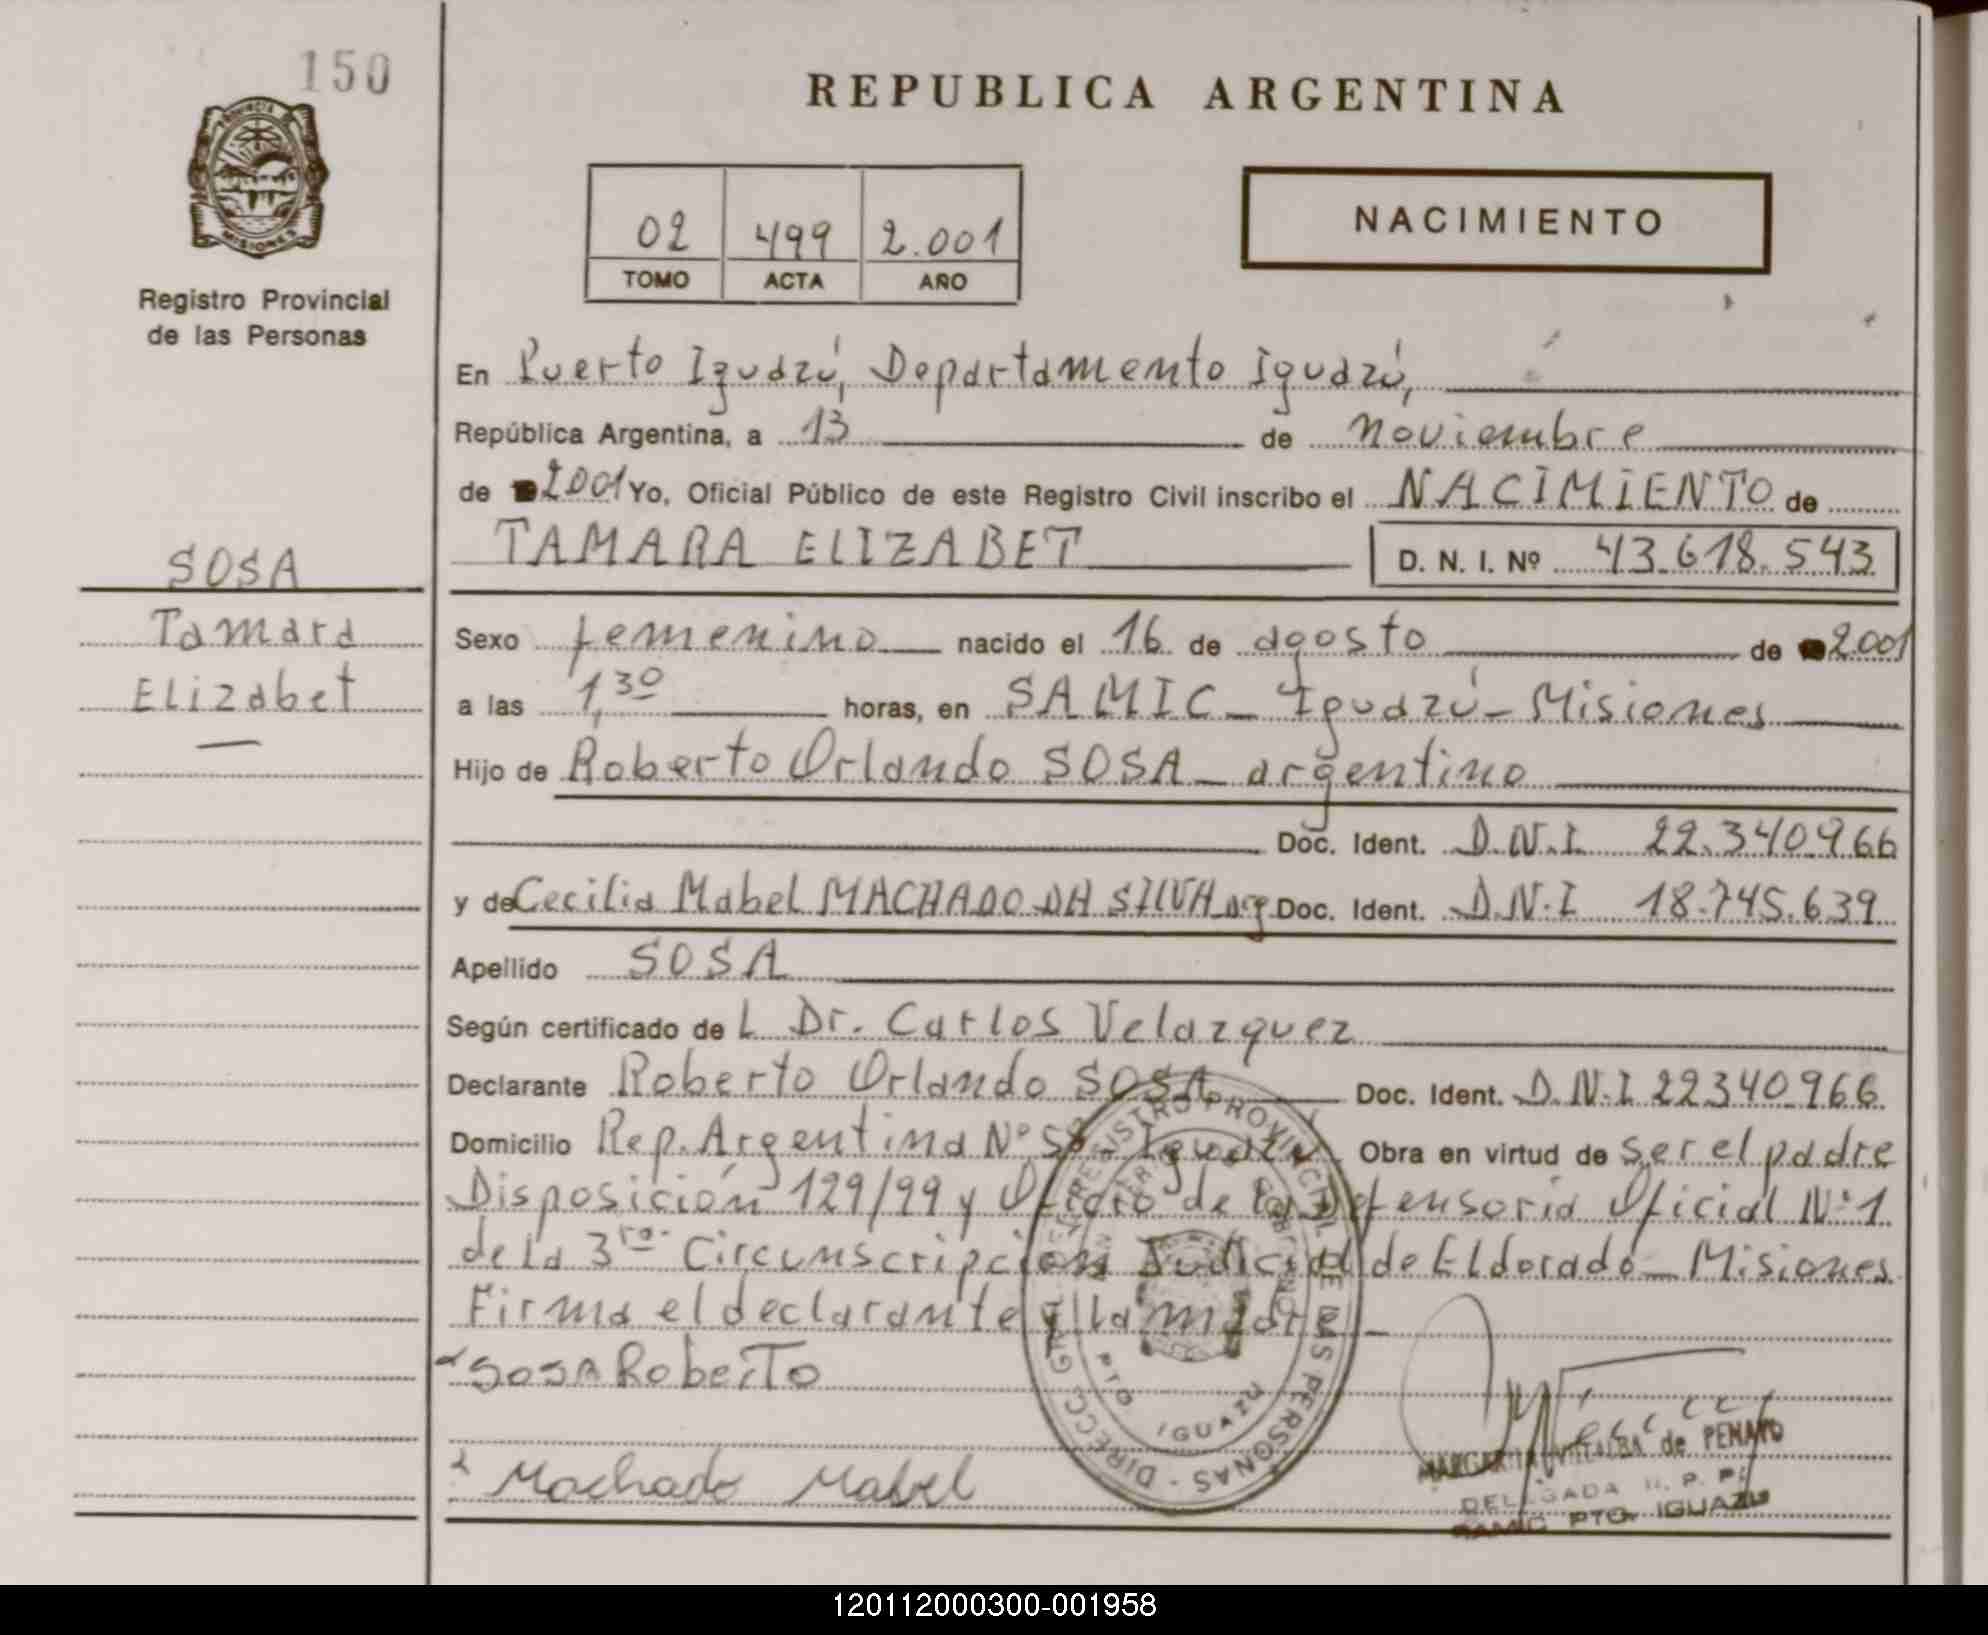 150
REPUBLICA ARGENTINA
PROVINCIA DE
MISIONES
02 499 2.001
TOMO ACTA AÑO
NACIMIENTO
Registro Provincial
de las Personas
En Puerto Iguazú, Departamento Iguazú,
República Argentina, a 13 de noviembre
de 2001 Yo, Oficial Público de este Registro Civil inscribo el NACIMIENTO de
TAMARA ELIZABET D. N. I. Nº 43.618.543
SOSA
Tamara
Elizabet
Sexo femenino nacido el 16 de agosto de 2001
a las 1,30 horas, en SAMIC - Iguazú - Misiones
Hijo de Roberto Orlando SOSA - argentino
Doc. Ident. D.N.I 22.340.966
y de Cecilia Mabel MACHADO DA SILVA arg Doc. Ident. D.N.I 18.745.639
Apellido SOSA
Según certificado de L Dr. Carlos Velazquez
Declarante Roberto Orlando SOSA Doc. Ident. D.N.I 22340966
Domicilio Rep. Argentina Nº Iguazú Obra en virtud de ser el padre
Disposición 129/99 y Oficio de la Defensoria Oficial Nº 1
de la 3ra. Circunscripción Judicial de Eldorado - Misiones
Firma el declarante y la madre -
SOSA Roberto
Machado Mabel
DIRECC. GRAL. DEL REGISTRO PROVINCIAL DE LAS PERSONAS
PTO IGUAZU
MARGARITA VILLALBA de PENAYO
DELEGADA R. P. P.
SAMIC PTO. IGUAZU
120112000300-001958